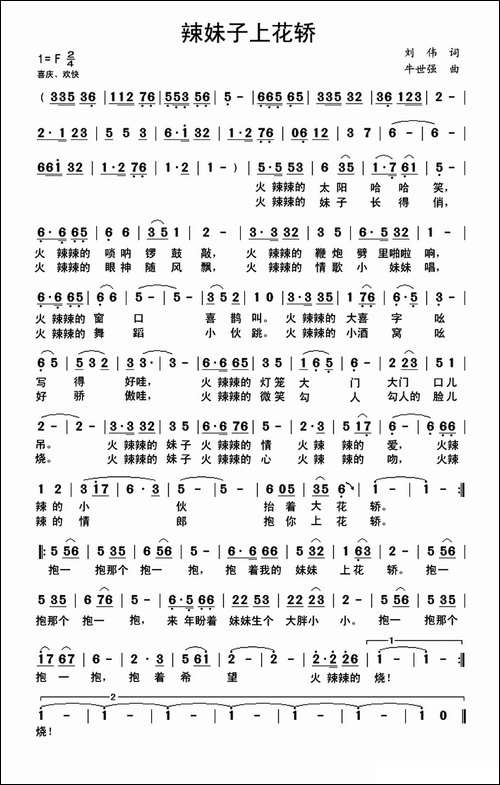 辣妹子上花轿
1=F 2/4
刘 伟 词
喜庆、欢快
牛世强 曲
(335 36 | 112 76 | 553 56 | 5 - | 665 65 | 335 32 | 36 123 | 2 - |
2·1 23 | 5 5 3 | 6·1 32 | 1·2 76 | 06 12 | 3 7 | 6 - | 6 - |
661 32 | 1·2 76 | 1·2 | 1 - ) | 5·5 53 | 6 35 | 1·7 61 | 5 - |
火 辣辣的 太 阳 哈 哈 笑,
火 辣辣的 妹 子 长 得 俏,
6·6 65 | 6 6 | 351 | 2 - | 3·3 32 | 3 5 | 6·5 35 | 1 - |
火 辣辣的 唢 呐 锣 鼓 敲, 火 辣辣的 鞭 炮 劈 里啪啦 响,
火 辣辣的 眼 神 随 风 飘, 火 辣辣的 情 歌 小 妹妹 唱,
6·6 65 | 6 6 | 5 - | 5 - | 35 2 | 1 0 | 3·3 35 | 1 76 | 6·5 |
火 辣辣的 窗 口 喜 鹊 叫。火 辣辣的 大 喜 字 吆
火 辣辣的 舞 蹈 小 伙 跳。火 辣辣的 小 酒 窝 吆
6 5 | 532 | 3 3· | 3 - | 6·6 65 | 35 1 | 6·5 | 6 - | 2 23 | 51 |
写 得 好哇, 火 辣辣的 灯 笼 大 门 大门 口儿
好 骄 傲哇, 火 辣辣的 微 笑 勾 人 勾人的 脸儿
2 - | 2 - | 3·3 32 | 35 | 6·6 65 | 1 - | 6·5 35 | 2 - | 6 - | 6 66 |
吊。 火 辣辣的 妹子 火 辣辣的 情 火 辣 辣的 爱, 火辣
烧。 火 辣辣的 妹子 火 辣辣的 心 火 辣 辣的 吻, 火辣
1 2 | 3 17 | 6·3 | 5 - | 5 - | 605 | 35 6 | 1 - | 1 - :||
辣 的 小 伙 抬 着 大 花 轿。
辣 的 情 郎 抱 你 上 花 轿。
||: 5 56 | 5 35 | 6 56 | 5 - | 6·6 66 | 5 32 | 1 63 | 2 - | 5 56 |
抱一 抱那个 抱一 抱, 抱 着我的 妹妹 上 花 轿。抱一
5 35 | 6 76 | 5 - | 6·5 66 | 223 53 | 22 23 | 2 - | 5 56 | 5 35 |
抱那个 抱一 抱, 来 年盼着 妹妹生个 大胖小 小。抱一 抱那个
17 67 | 6 - | 2·3 | 5 61 | 2 - | 2 - | 2·2 26 | 5 - | 5 - :||
抱 一 抱, 抱 着 希 望 火 辣辣的 烧!
1 - | 1 - | 1 - | 1 - | 1 - | 1 - | 1 - | 1 0 ||
烧!